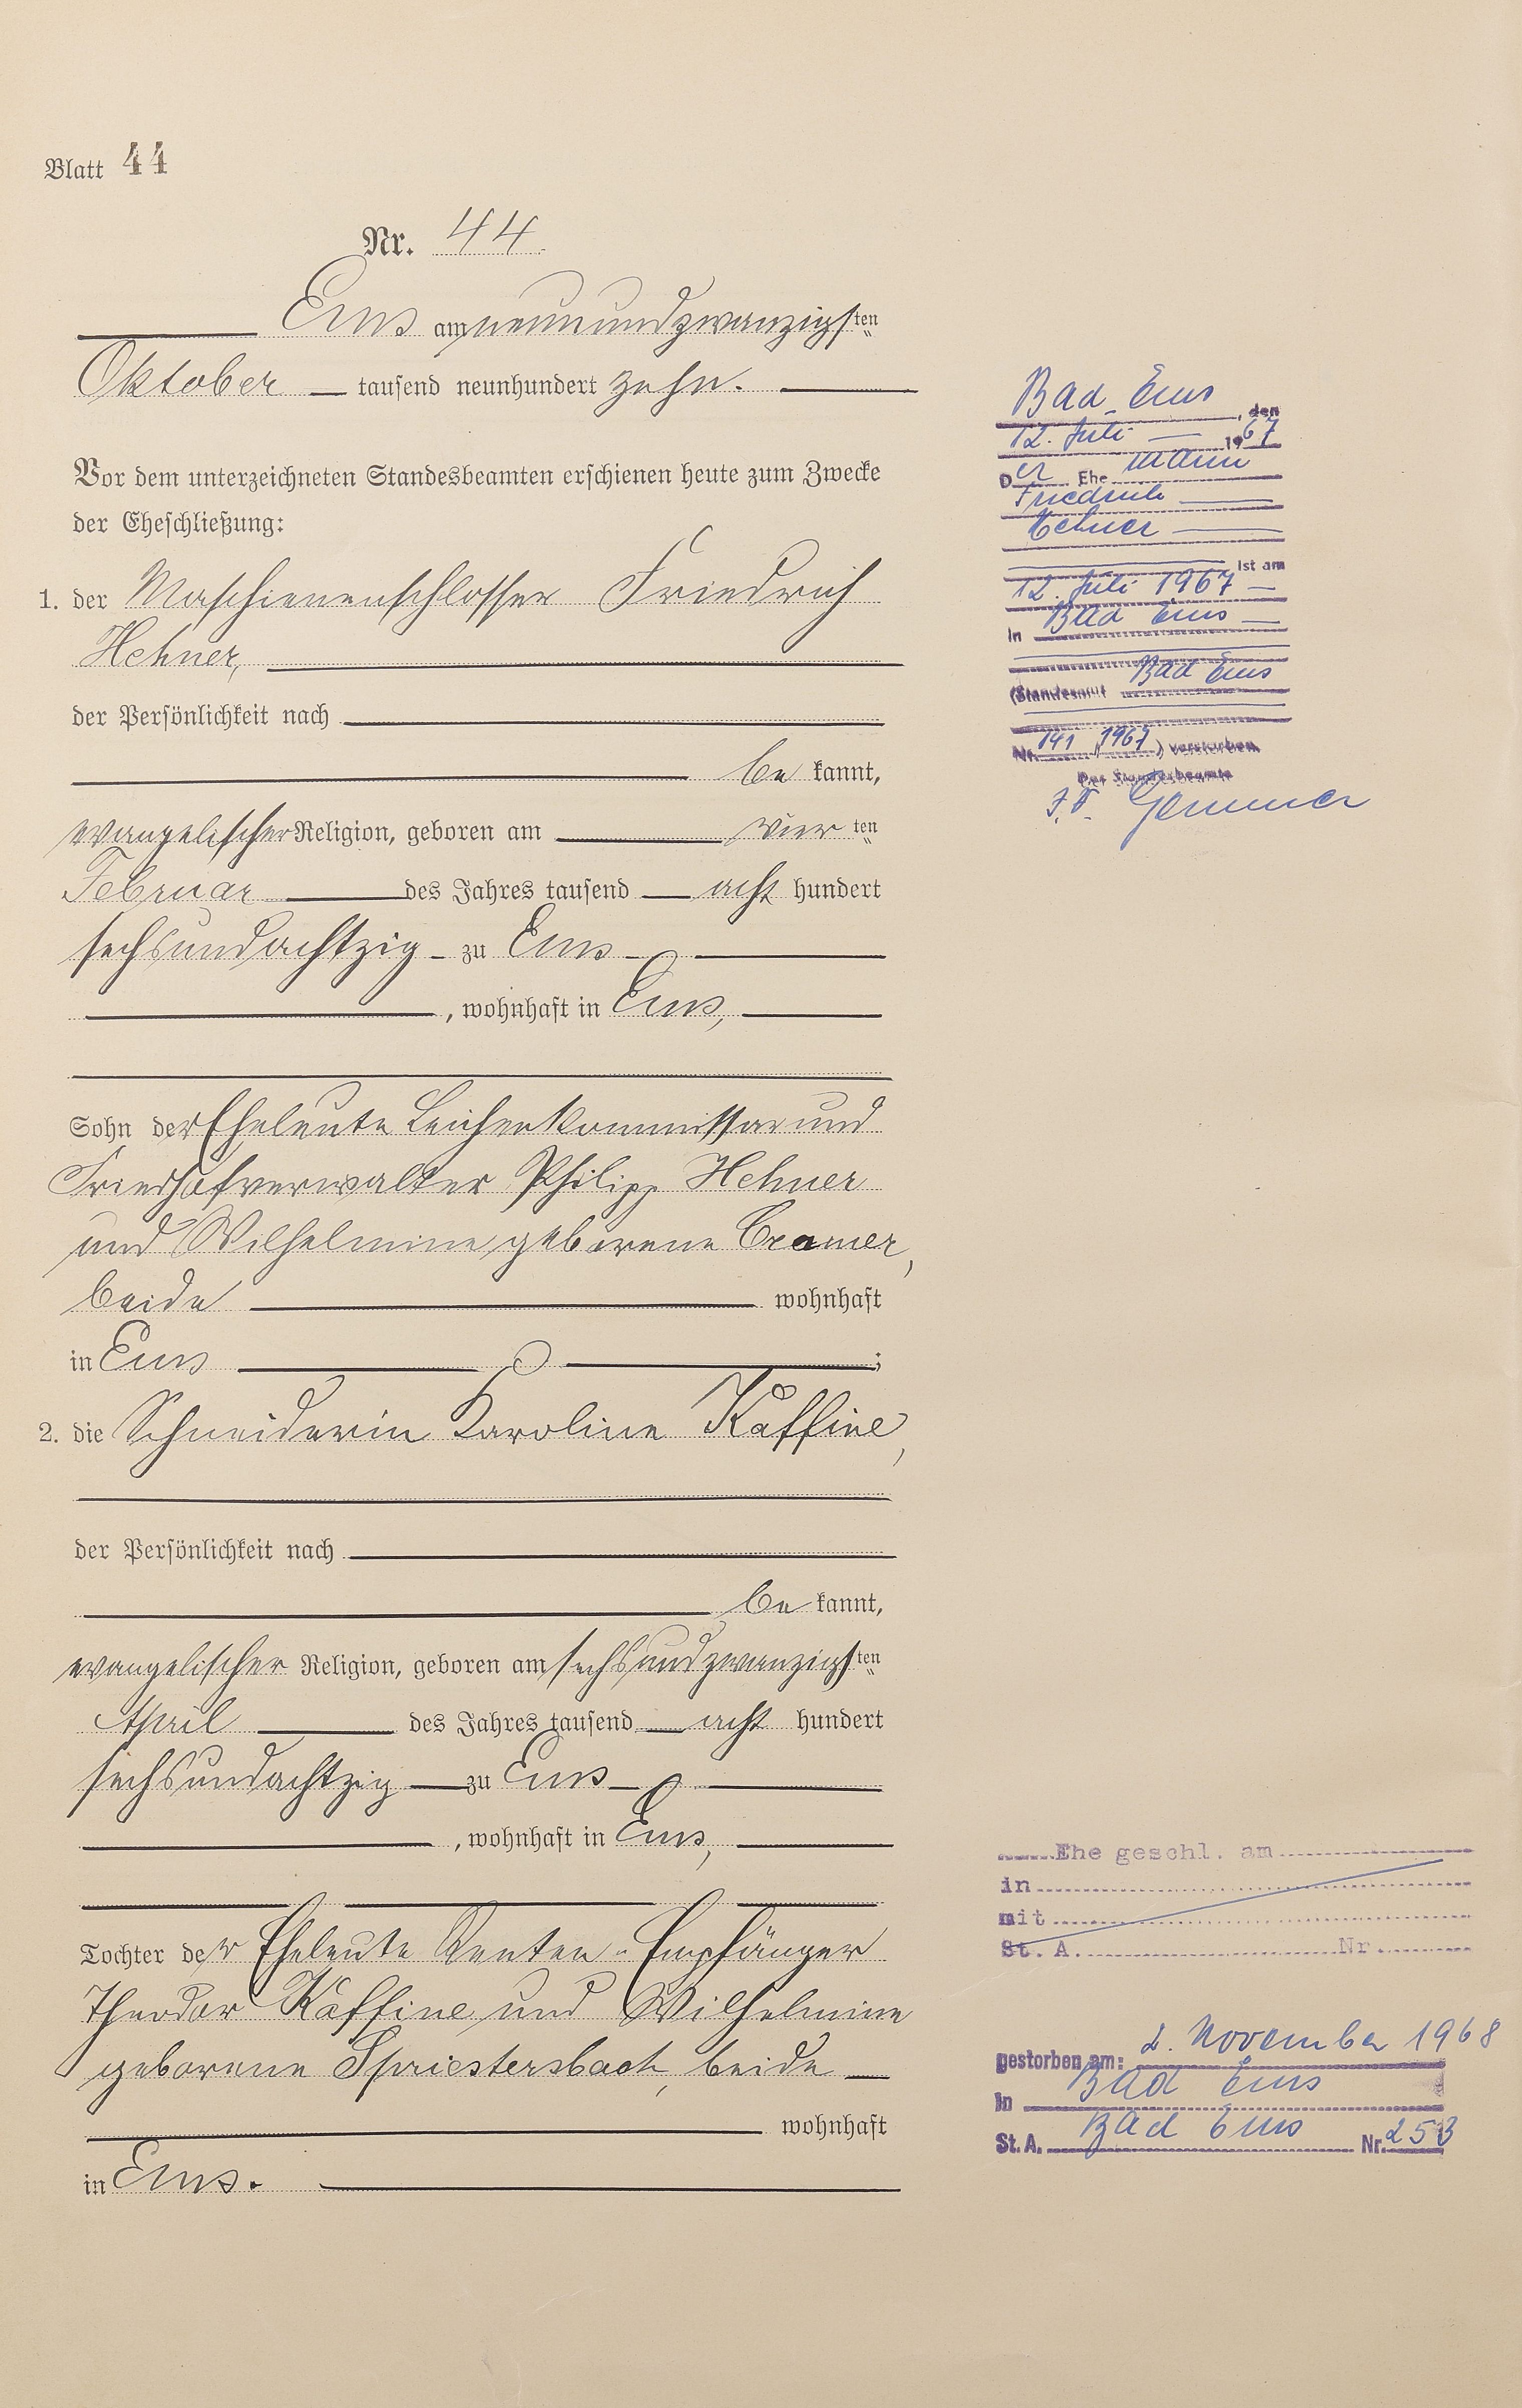 Blatt 44
Nr. 44.
Ems am neunundzwanzigsten
Oktober tausend neunhundert zehn.
Vor dem unterzeichneten Standesbeamten erschienen heute zum Zwecke
der Eheschließung:
1. der Maschienenschlosser Friedrich
Hehner,
der Persönlichkeit nach
be kannt,
evangelischer Religion, geboren am vierten
Februar des Jahres tausend acht hundert
sechsundachtzig zu Ems
, wohnhaft in Ems,
Sohn der Eheleute Leichenkommissar und
Friedhofverwalter Philipp Hehner
und Wilhelmine geborene Cramer,
beide wohnhaft
in Ems ;
2. die Schneiderin Karoline Kaffine,
der Persönlichkeit nach
be kannt,
evangelischer Religion, geboren am sechsundzwanzigsten
April des Jahres tausend acht hundert
sechsundachtzig zu Ems
, wohnhaft in Ems,
Tochter der Eheleute Renten-Empfänger
Theodor Kaffine und Wilhelmine
geborene Spriestersbach, beide
wohnhaft
in Ems.
Bad Ems, den
12. Juli 1967
Der Ehemann
Friedrich
Hehner
ist am
12. Juli 1967
in Bad Ems
(Standesamt Bad Ems
Nr. 141/1967) verstorben
Der Standesbeamte
Ehe geschl. am
in
mit
St. A. Nr.
gestorben am: 2. November 1968
in Bad Ems
St. A. Bad Ems Nr. 253